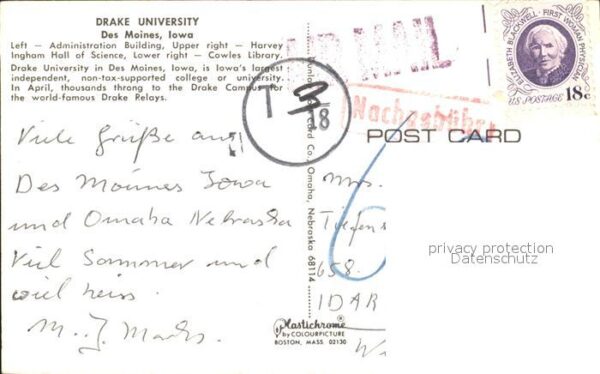 DRAKE UNIVERSITY
Des Moines, Iowa
Left — Administration Building, Upper right — Harvey
Ingham Hall of Science, Lower right — Cowles Library.
Drake University in Des Moines, Iowa, is Iowa's largest
independent, non-tax-supported college or university.
In April, thousands throng to the Drake Campus for
the world-famous Drake Relays.
AIR MAIL
ELIZABETH BLACKWELL · FIRST WOMAN PHYSICIAN
U.S. POSTAGE 18c
T
18
Nachgebühr
POST CARD
Card Co. Omaha, Nebraska 68114
Viele Grüße aus
Des Moines Iowa
und Omaha Nebraska
Viel Sommer und
viel heiss.
6
Mrs.
Tiefens
658
IDAR
privacy protection
Datenschutz
Plastichrome
by COLOURPICTURE
BOSTON, MASS. 02130